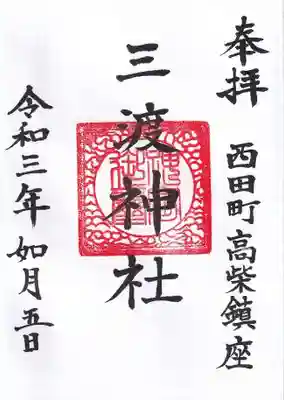 奉拝　西田町高柴鎮座
三渡神社
令和三年　如月五日